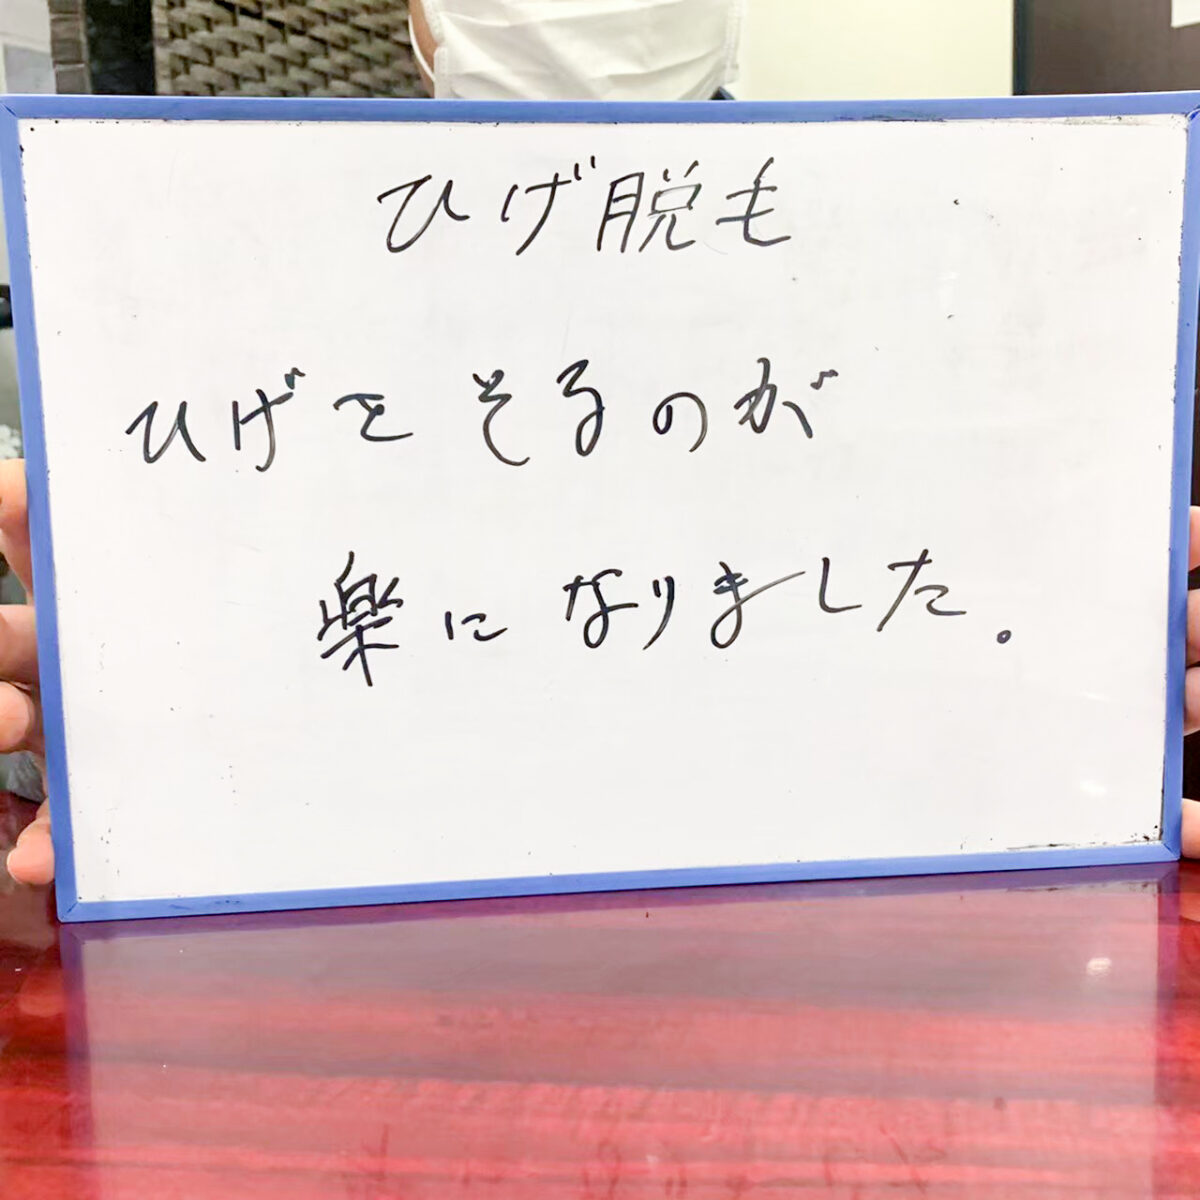 ひげ脱毛
ひげをそるのが
楽になりました。